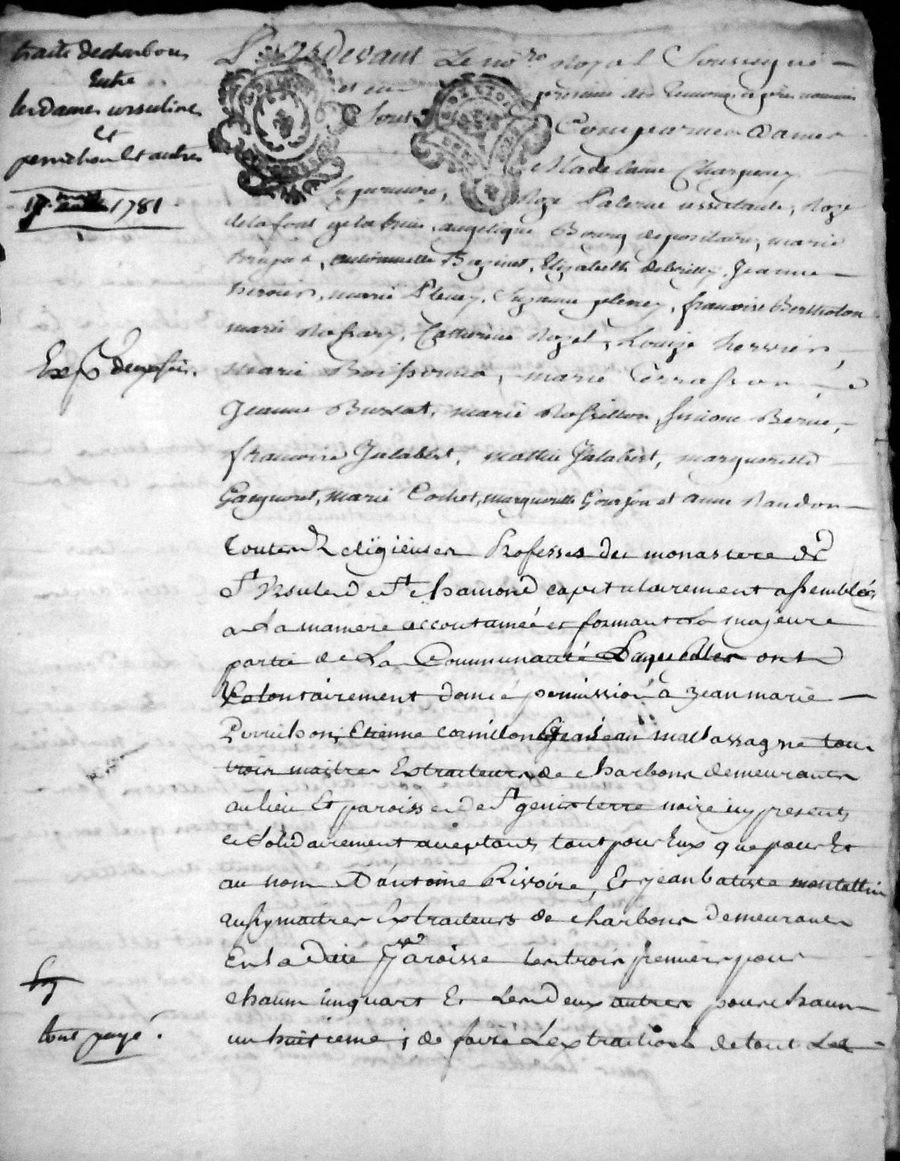 traite de charbon
Entre
les dames ursulines
Et
perrichon Et autres
1781
Pardevant Le no.re Royal Soussigné
et en presence des temoins apres nommés
Sont Comparues Dames
Madelaine
superieure, assistante, Roze
de la font angelique Bourg depositaire, marie
antoinette Elizabeth Jeanne
marie Fleury, Suzanne fleury, francoise Bertholon
marie Catherine Louize hervier,
marie Boissonna, marie terrasson
Jeanne Burlat, marie Rossillon,
francoise Jalabert, Jalabert, margueritte
Gaugnoret, marie Cochet, margueritte Gourjon et anne Naudon
Exp. deux fois.
toutes Religieuses Professes du monastere de
S.t Ursule de S.t chamond capitulairement assemblées
a La maniere accoutumée et formant La majeure
partie de La Communauté Lesquelles ont
Volontairement donné permission à jean marie
Perrichon, Etienne cornillon Et jean mallassagne tous
trois maitres Extraiteurs de charbons demeurants
au lieu Et paroisse de S.t genis terre noire icy presents
et solidairement acceptants tant pour Eux que pour Et
au nom D'antoine Rivoire, Et jean batiste montellin
aussy maitres Extraiteurs de charbons demeurants
En La dite Paroisse Les trois premiers pour
chacun un quart Et Les Deux autres pour chacun
un huitieme, de faire L'extraction de tout Le
tout payé.